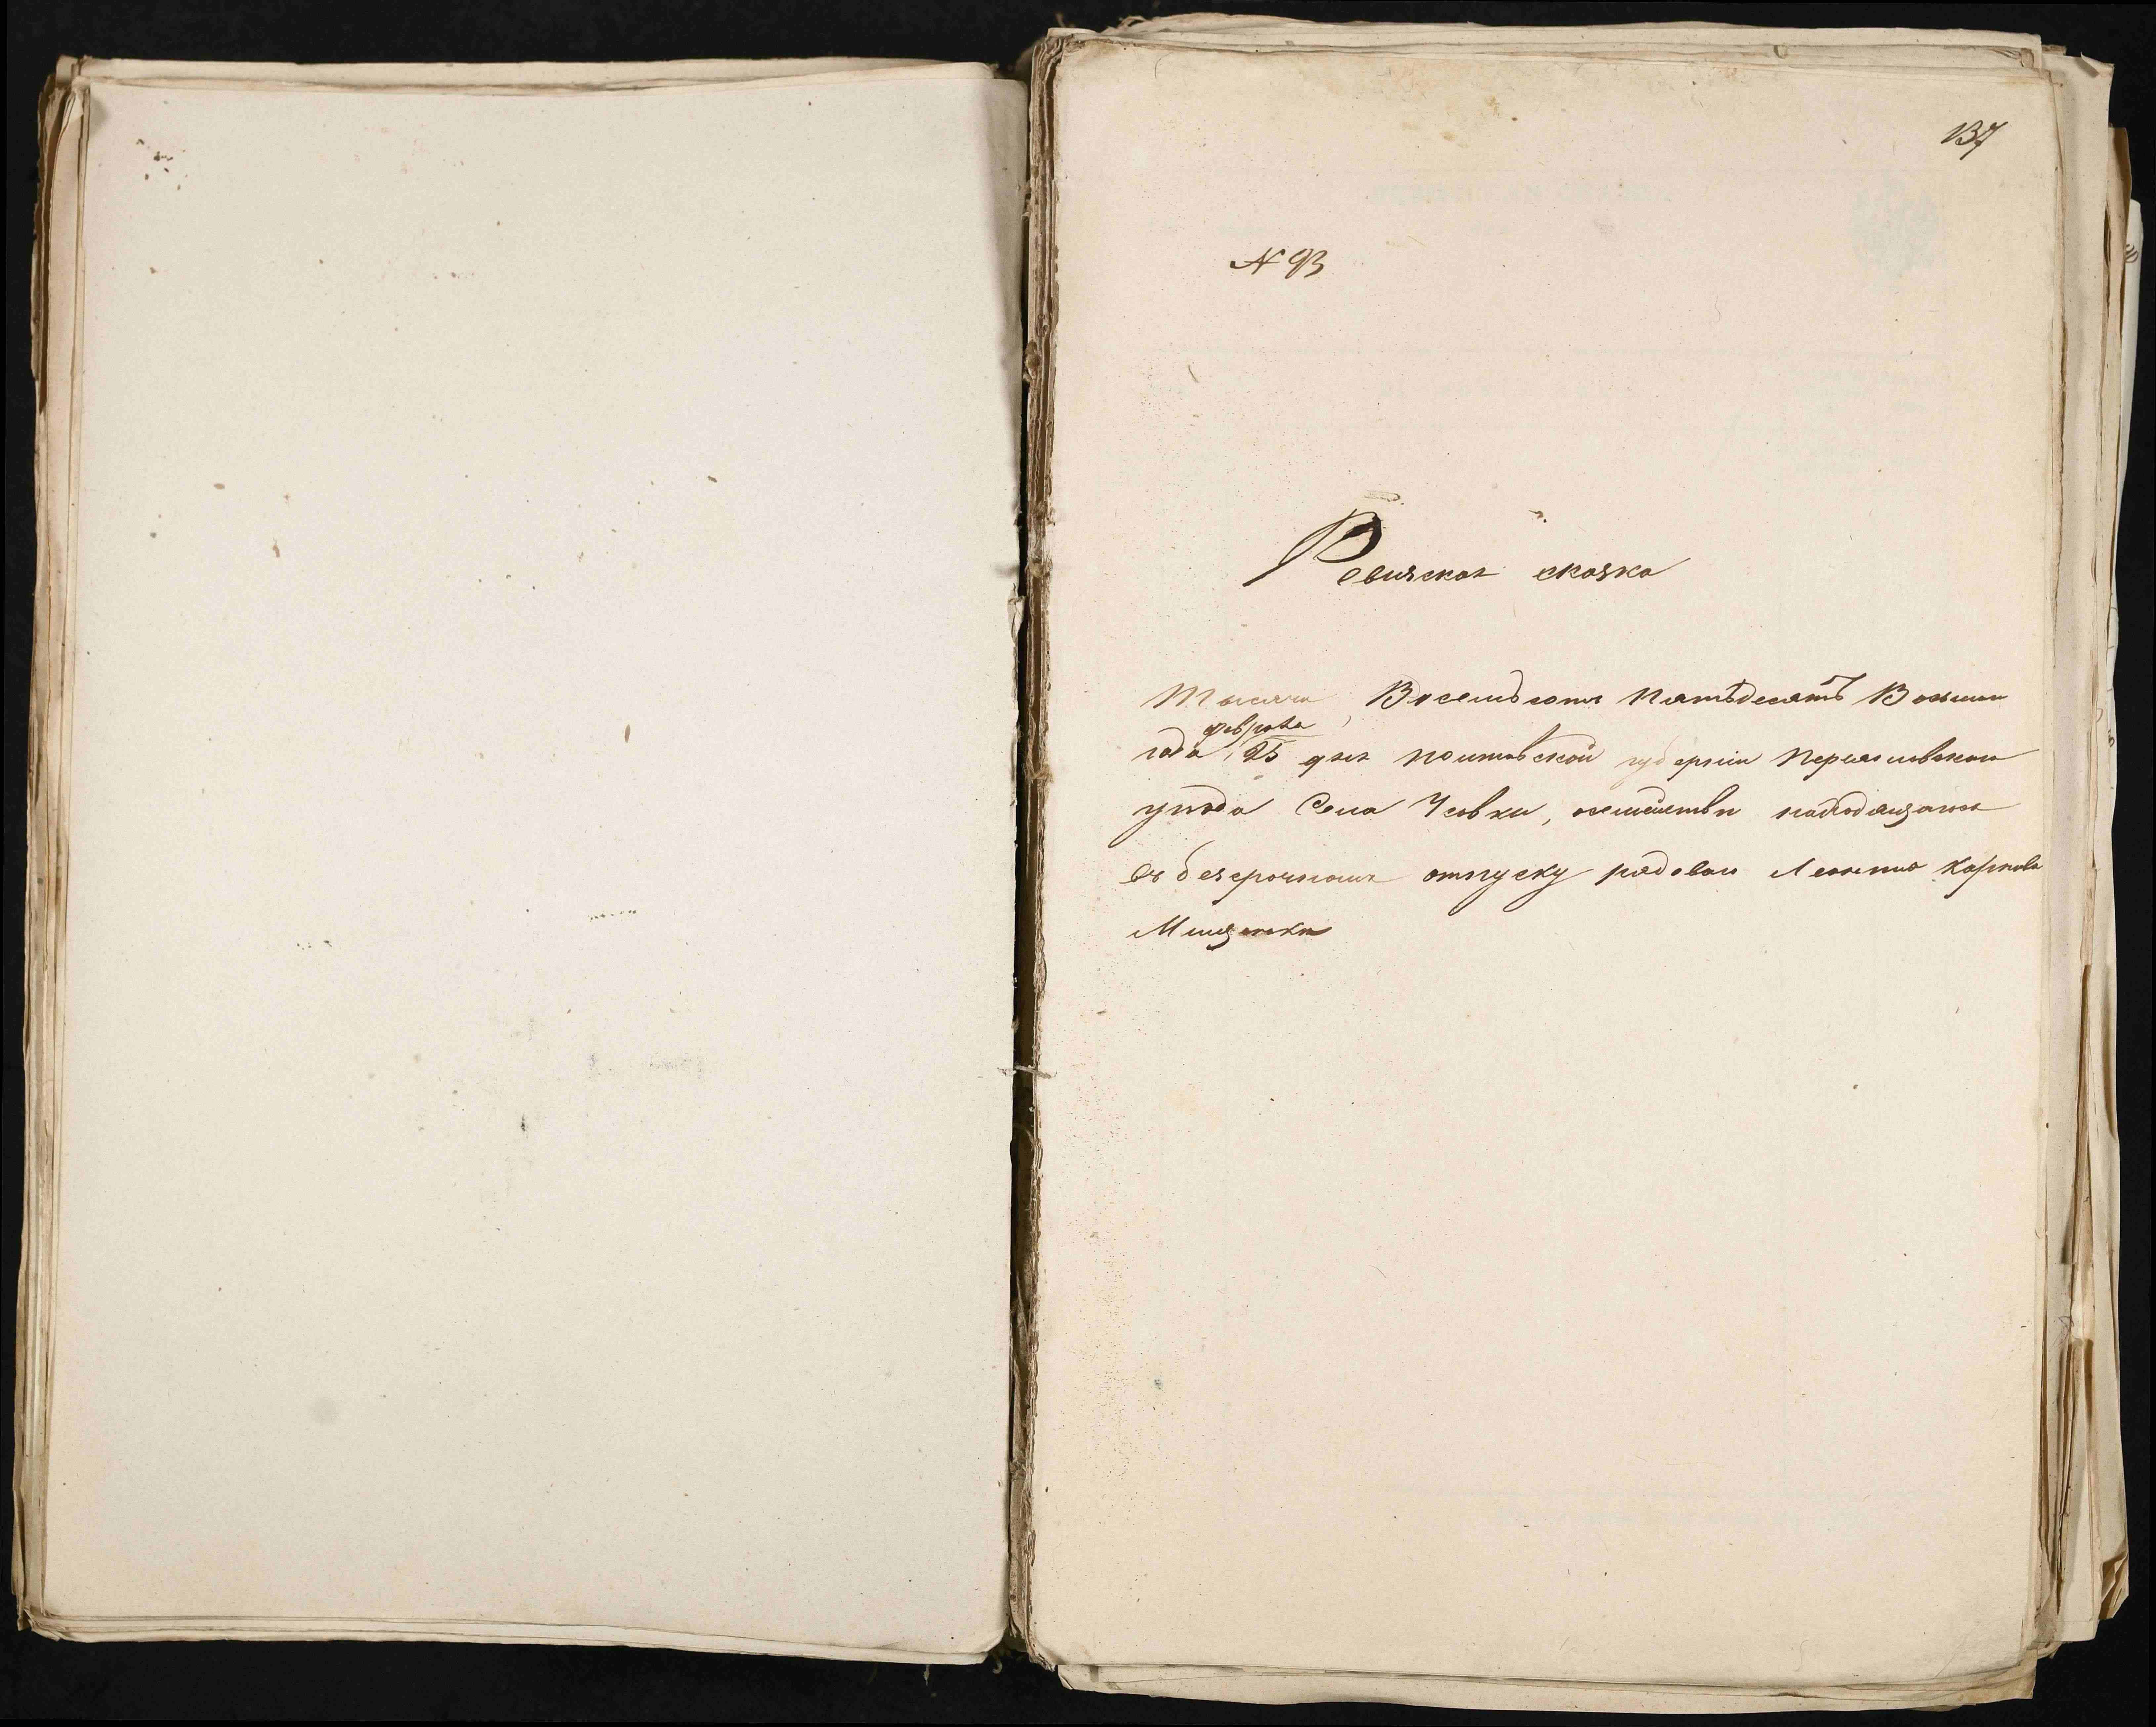 137
N 93
Ревизская сказка
Тысяча Восемьсотъ Пятьдесятъ Восьмаго
февраля
года, 25 дня Полтавской губерніи Переяславскаго
уѣзда Села Чевхи, осемействѣ находящагося
въ безсрочномъ отпуску рядоваго Леонтія Карпова
Мищенка